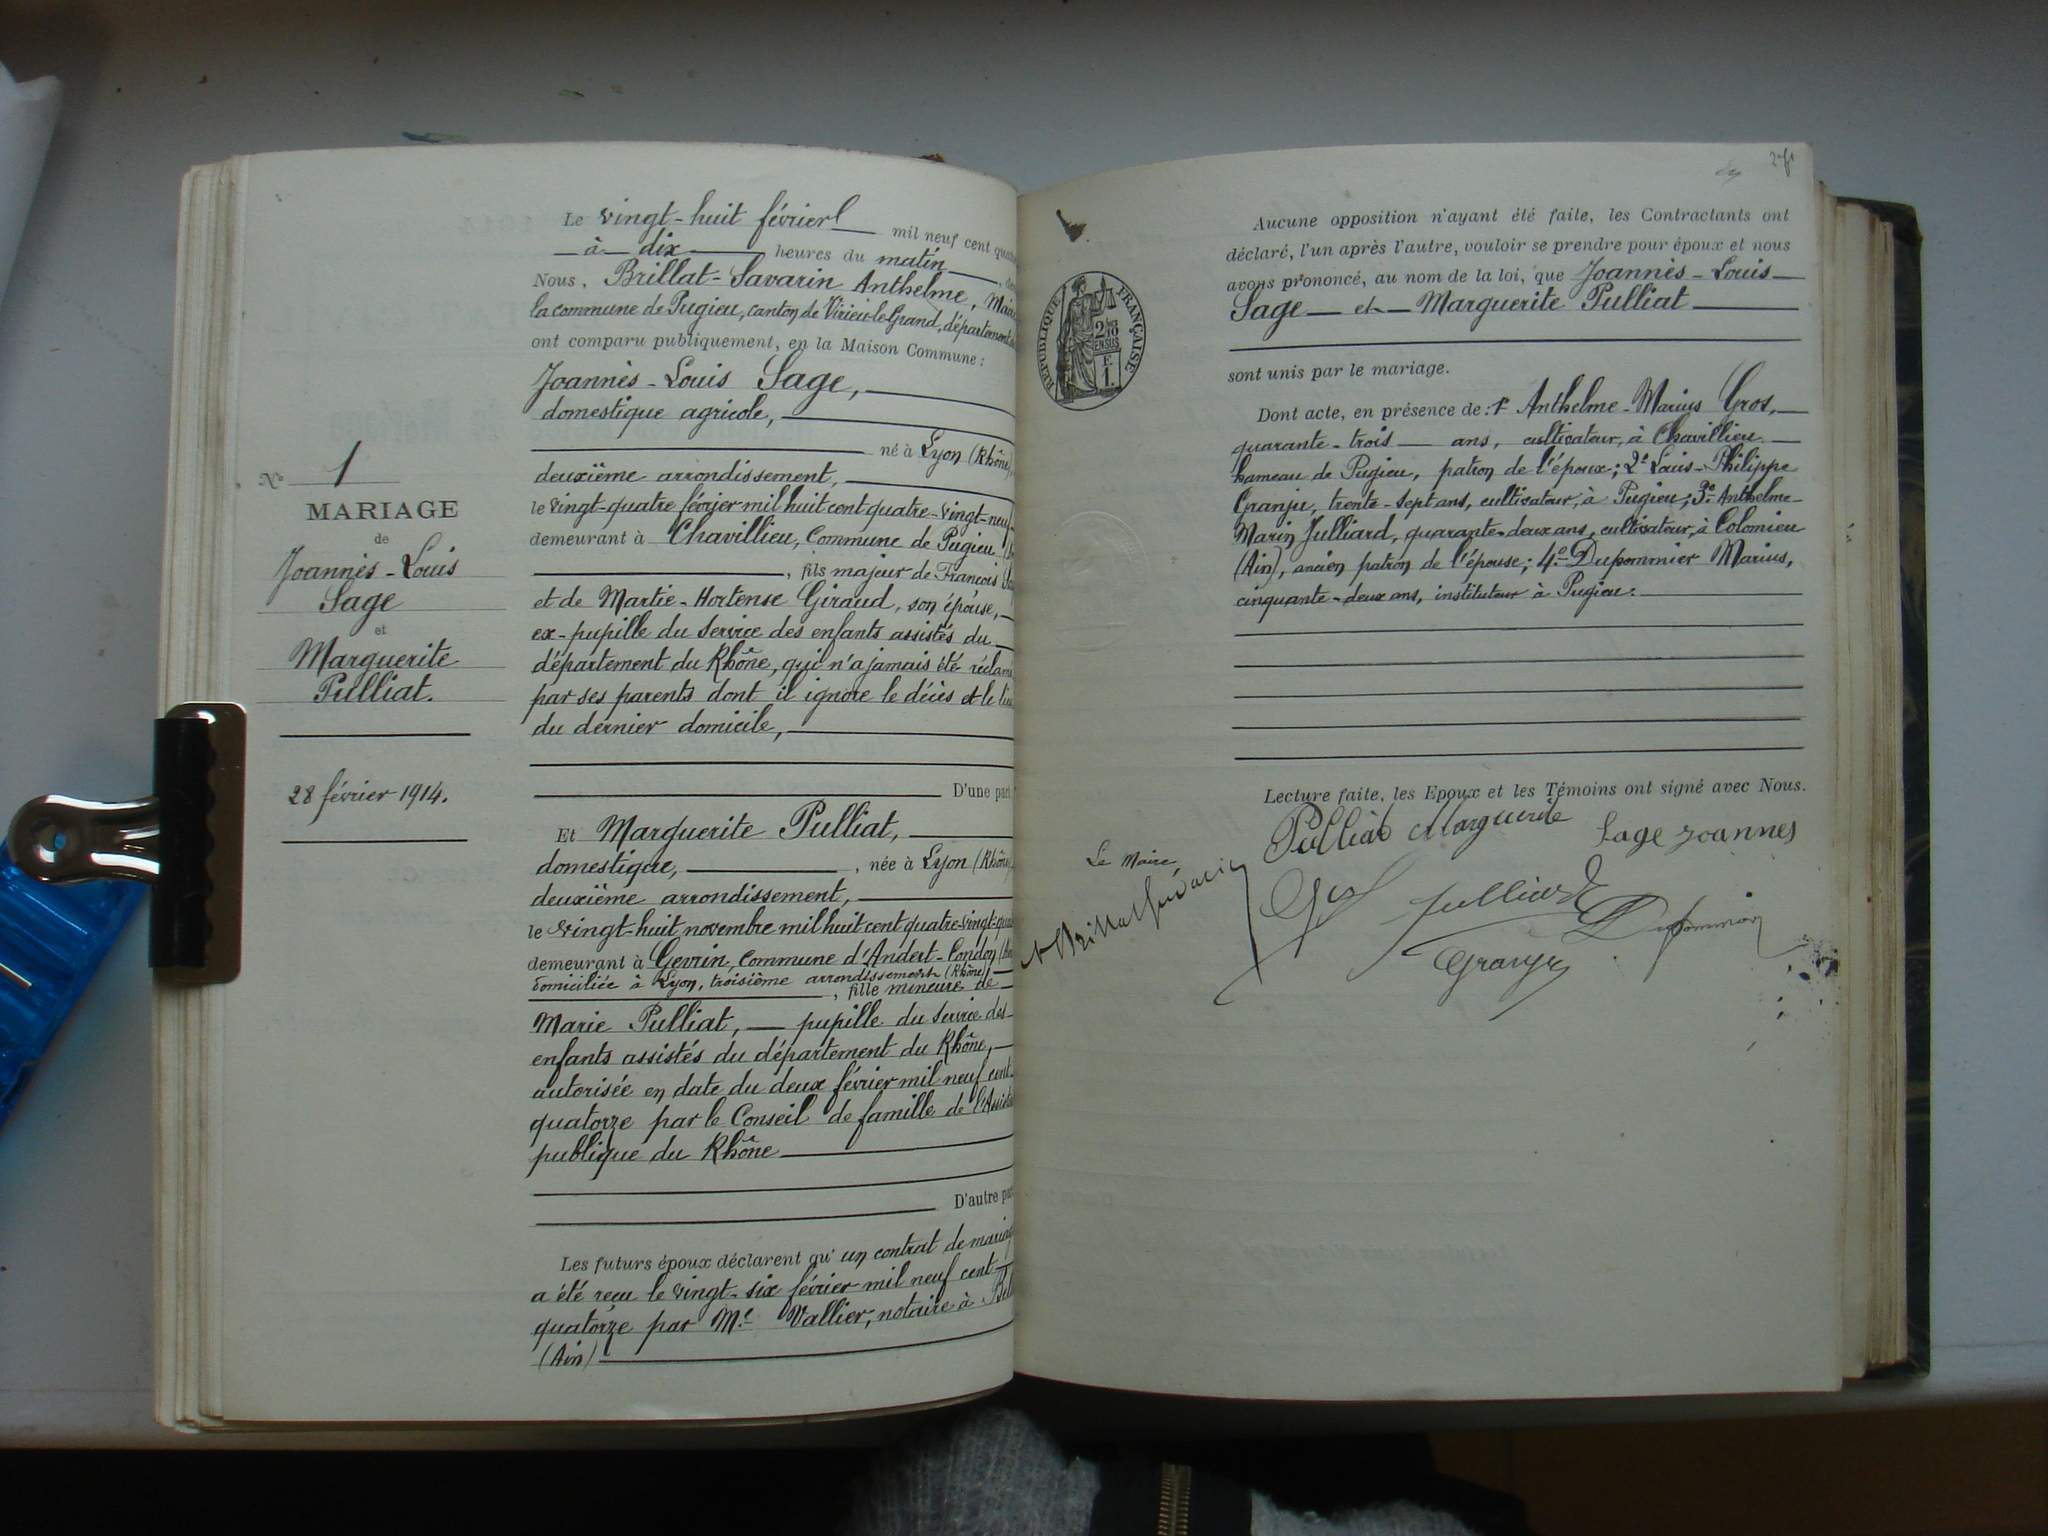 Nº 1
MARIAGE
de
Joannès-Louis
Sage
et
Marguerite
Pulliat.
28 février 1914.
Le vingt-huit février mil neuf cent
à dix heures du matin
Nous, Brillat-Savarin Anthelme,
la commune de Pugieu, canton de Virieu-le-Grand, département
ont comparu publiquement, en la Maison Commune:
Joannès-Louis Sage,
domestique agricole,
né à Lyon (Rhône)
deuxième arrondissement,
le vingt-quatre février mil huit cent quatre-vingt-neuf
demeurant à Chavillieu, Commune de Pugieu
, fils majeur de François
et de Martie-Hortense Giraud, son épouse,
ex-pupille du service des enfants assistés du
département du Rhône, qui n'a jamais été
par ses parents dont il ignore le décès et le
du dernier domicile,
D'une part
Et Marguerite Pulliat,
domestique, , née à Lyon (Rhône)
deuxième arrondissement,
le vingt-huit novembre mil huit cent quatre-vingt-
demeurant à Gevrin, commune d'Andert-Condon
domiciliée à Lyon, troisième arrondissement (Rhône)
, fille mineure de
Marie Pulliat, pupille du service des
enfants assistés du département du Rhône,
autorisée en date du deux février mil neuf cent
quatorze par le Conseil de famille de
publique du Rhône
D'autre
Les futurs époux déclarent qu'un contrat de
a été reçu le vingt-six février mil neuf cent
quatorze par Me Vallier, notaire à
(Ain)
REPUBLIQUE FRANÇAISE
2/10
EN SUS
E
1.
Aucune opposition n'ayant été faite, les Contractants ont
déclaré, l'un après l'autre, vouloir se prendre pour époux et nous
avons prononcé, au nom de la loi, que Joannès-Louis
Sage et Marguerite Pulliat
sont unis par le mariage.
Dont acte, en présence de: 1º Anthelme-Marius Gros,
quarante-trois ans, cultivateur, à Chavillieu
hameau de Pugieu, patron de l'époux; 2º Louis-Philippe
Granju, trente-sept ans, cultivateur, à Pugieu; 3º Anthelme-
Marin Julliard, quarante-deux ans, cultivateur, à Colomieu
(Ain), ancien patron de l'épouse; 4º Dupommier Marius,
cinquante-deux ans, instituteur à Pugieu.
Lecture faite, les Epoux et les Témoins ont signé avec Nous.
Pulliat Marguerite Sage Joannes
Le Maire
Julliard